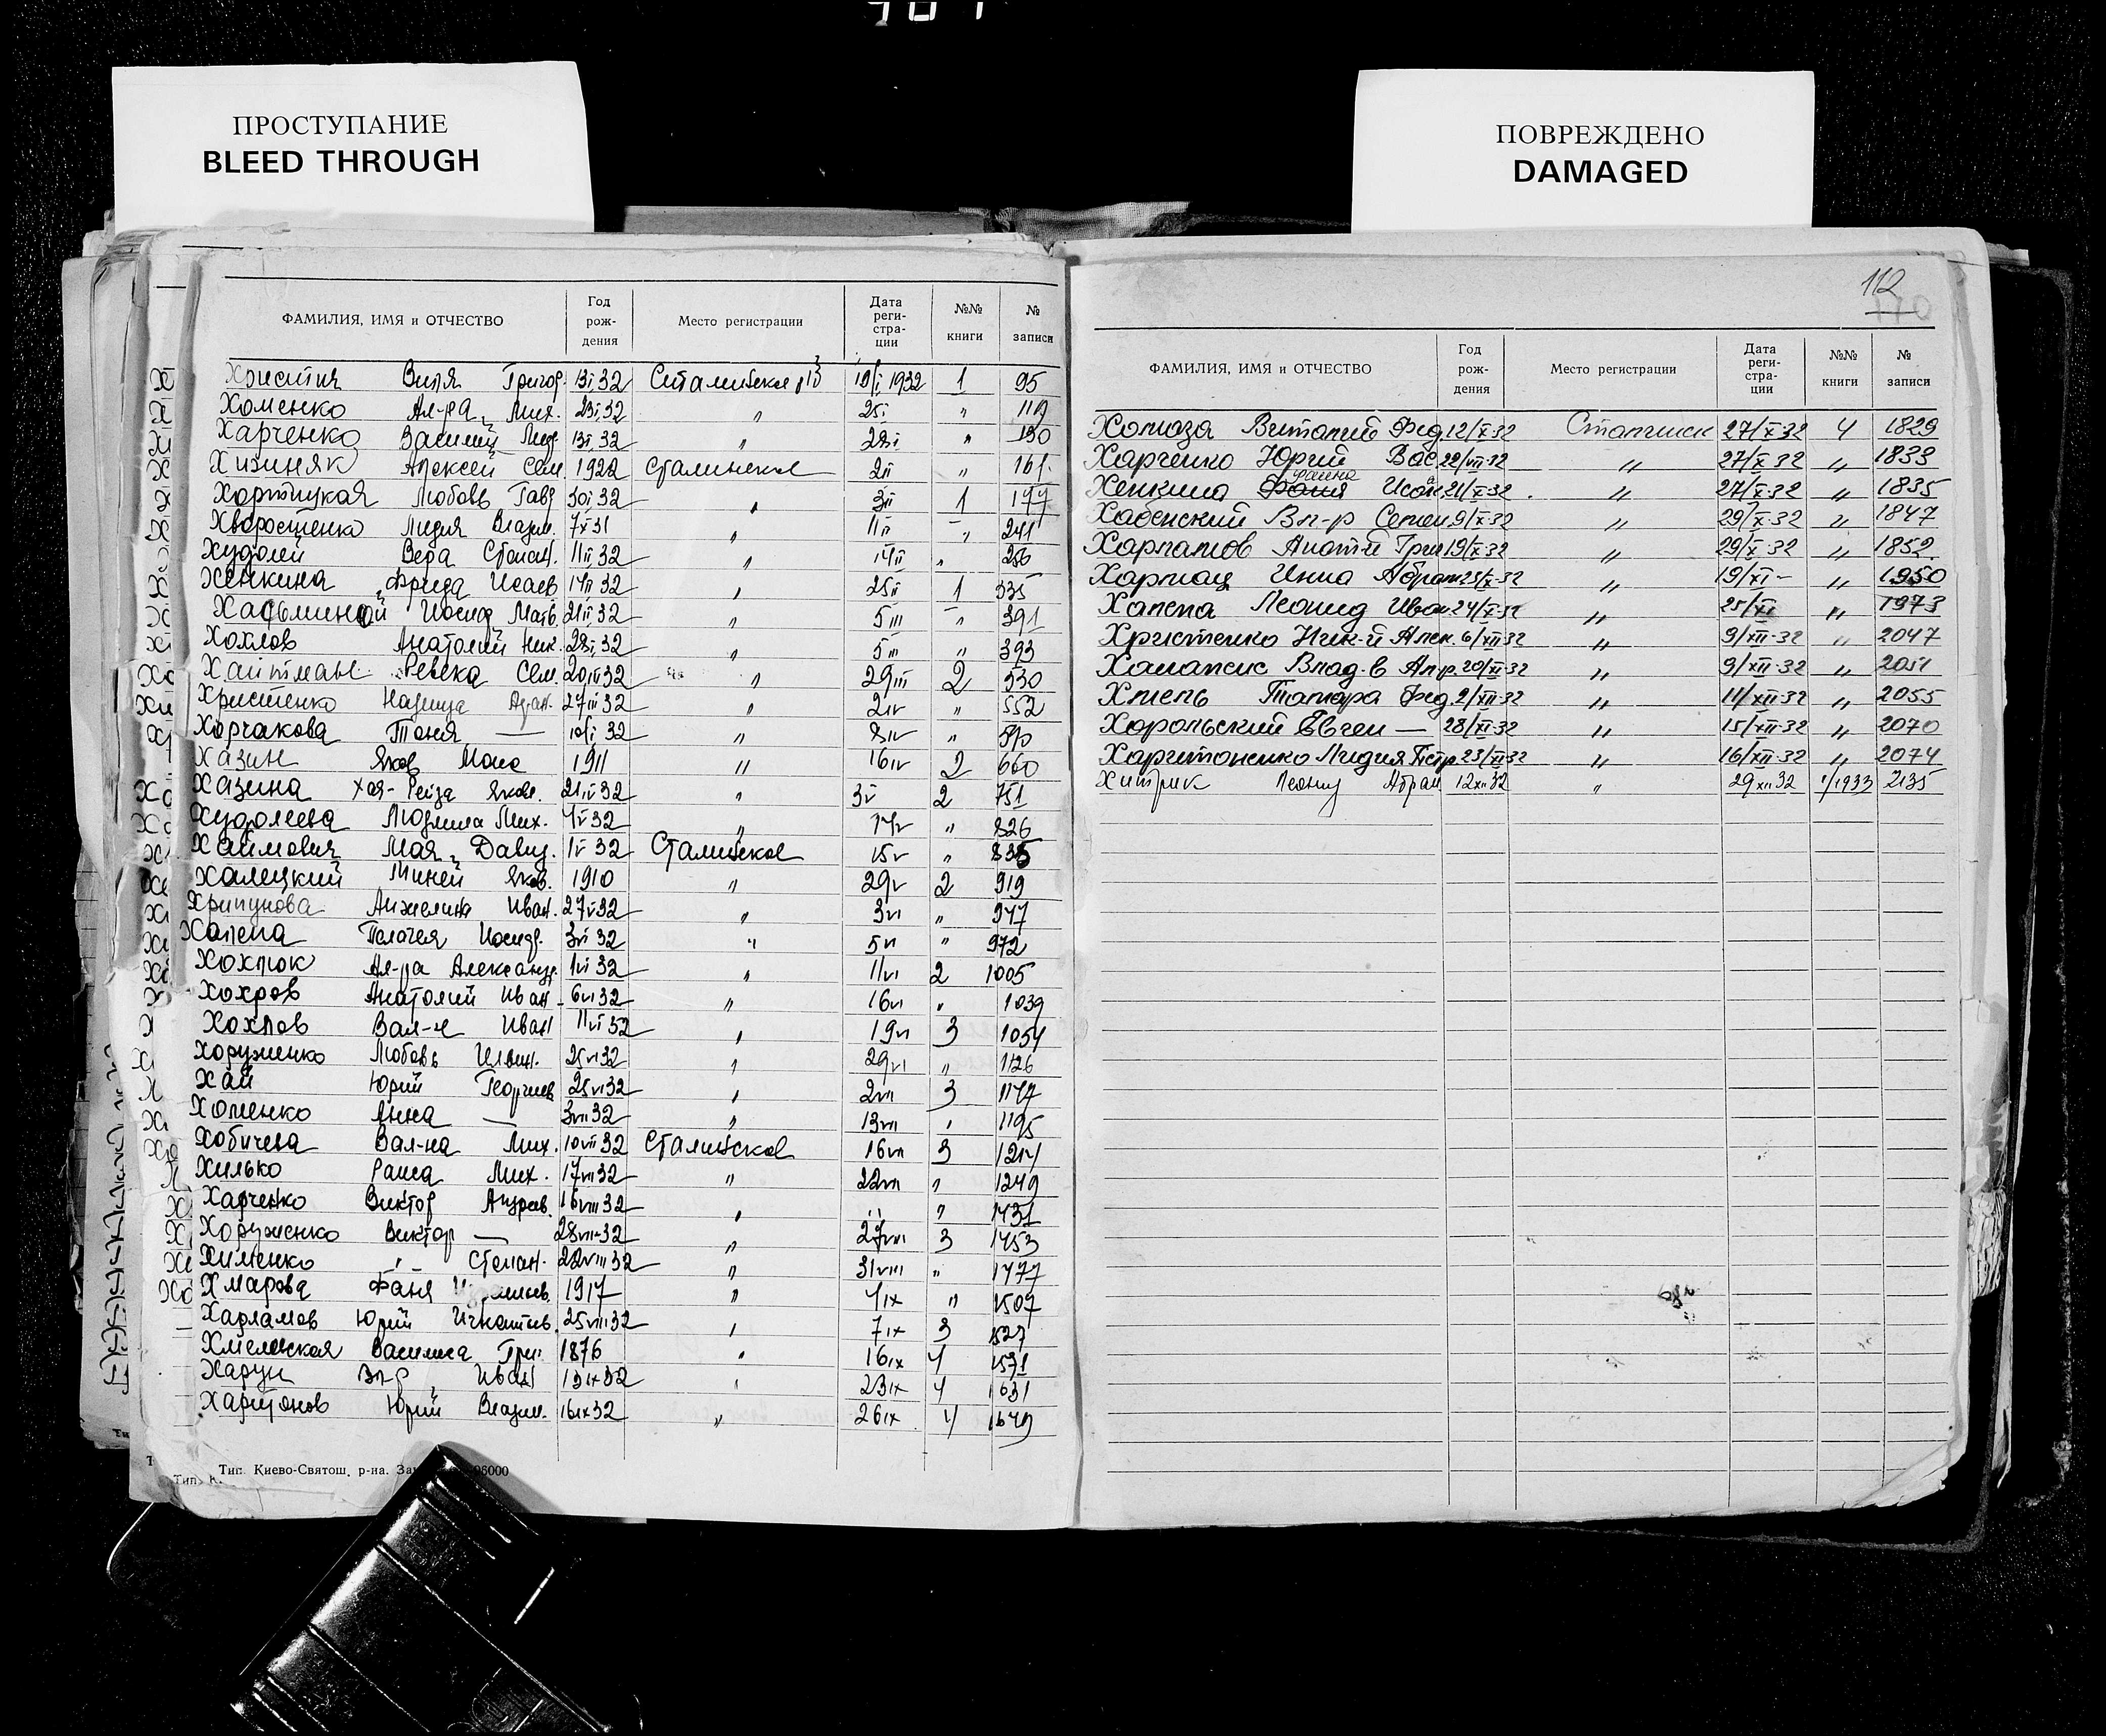 ПРОСТУПАНИЕ
BLEED THROUGH
ПОВРЕЖДЕНО
DAMAGED
ФАМИЛИЯ, ИМЯ и ОТЧЕСТВО Год рож- дения Место регистрации Дата реги- стра- ции №№ книги № записи
Христия Виля Григор. 13/I 32 19/I 1932 1 95
Хоменко Ал-ра Мих. 23/I 32 " 25/I " 119
Харченко Василий 13/I 32 " 28/I " 130
Хижняк Алексей Сем. 1922 Сталинское 2/II " 161
Хортицкая Любовь Гавр 30/I 32 " 3/II 1 177
Хворостенко Лидия Влад. 7/X 31 " 11/II " 241
Худолей Вера Степан. 11/II 32 " 14/II " 256
Хенкина Фрида Исаев 17/II 32 " 25/II 1 335
Иосиф Матв. 21/II 32 " 5/III " 391
Хохлов Анатолий Ник. 28/I 32 " 5/III " 393
Хайтман Ревека Сем. 20/III 32 " 29/III 2 530
Христенко Надежда 27/III 32 " 2/IV " 552
Хорчакова Тоня — 10/I 32 " 8/IV "
Хазин Яков 1911 " 16/IV 2 660
Хазина Хая-Рейза Яковл. 21/IV 32 " 3/V 2 751
Худолеева Людмила Мих. 4/V 32 " 14/V " 826
Хаимович Мая Давид. 1/V 32 Сталинское 15/V " 835
Халецкий Миней Яков. 1910 " 29/V 2 919
Хрипунова Анжелина Иван. 27/V 32 " 3/VI " 947
Хапепа Пелагея Иосиф. 3/VI 32 " 5/VI " 972
Хохлюк Ал-ра Александр. 1/VI 32 " 11/VI 2 1005
Хохров Анатолий Иван 6/VI 32 " 16/VI " 1039
Хохлов Вал-н Иван 11/VI 32 " 19/VI 3 1054
Хоруженко Любовь 25/VI 32 " 29/VI " 1126
Хай Юрий Георгиев 25/VI 32 " 2/VII 3 1147
Хоменко Анна — 3/VII 32 " 13/VII " 1195
Хобичева Вал-на Мих. 10/VII 32 Сталинское 16/VII 3 1214
Хилько Раиса Мих. 17/VII 32 " 22/VII " 1249
Харченко Виктор Андреев. 16/VIII 32 " " " 1431
Хоруженко Виктор — 28/VII-32 " 27/VIII 3 1453
Хименко " Степан. 22/VIII 32 " 31/VIII " 1477
Хмарова Фаня 1917 " 4/IX " 1507
Харламов Юрий Игнатьев. 25/VIII 32 " 7/IX 3 1527
Хмелевская Василиса Григ. 1876 " 16/IX 4 1571
Харун Вл-р Иван 13/IX 32 " 23/IX 4 1631
Харитонов Юрий Влад. 16/IX 32 " 26/IX 4 1649
Тип. Киево-Святош. р-на.
112
ФАМИЛИЯ, ИМЯ и ОТЧЕСТВО Год рож- дения Место регистрации Дата реги- стра- ции №№ книги № записи
Виталий Фед. 12/X-32 Сталинск 27/X-32 4 1829
Харченко Юрий Вас 22/VII-32 " 27/X-32 " 1833
Фаина
Хенкина Фаня Исак 21/X-32 " 27/X-32 " 1835
Хабенский Вл-р Семен 9/X-32 " 29/X-32 " 1847
Харламов Анатий Григ 19/X-32 " 29/X-32 " 1852
Хармац Инна Абрам 23/X-32 " 19/XI- " 1950
Хапепа Леонид Иван 24/X-32 " 25/XI " 1973
Христенко Ник-й Алек. 6/XII-32 " 9/XII-32 " 2047
Влад-в 20/XI-32 " 9/XII-32 " 2051
Хмель Тамара Фед. 2/XII-32 " 11/XII-32 " 2055
Хорольский Евген — 28/XI-32 " 15/XII-32 " 2070
Харитоненко Лидия Петр. 23/XI-32 " 16/XII-32 " 2074
Хитрик Леонид Абрам 12/XII 32 " 29/XII 32 1/1933 2135